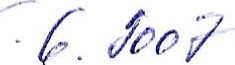 . 6. 2007